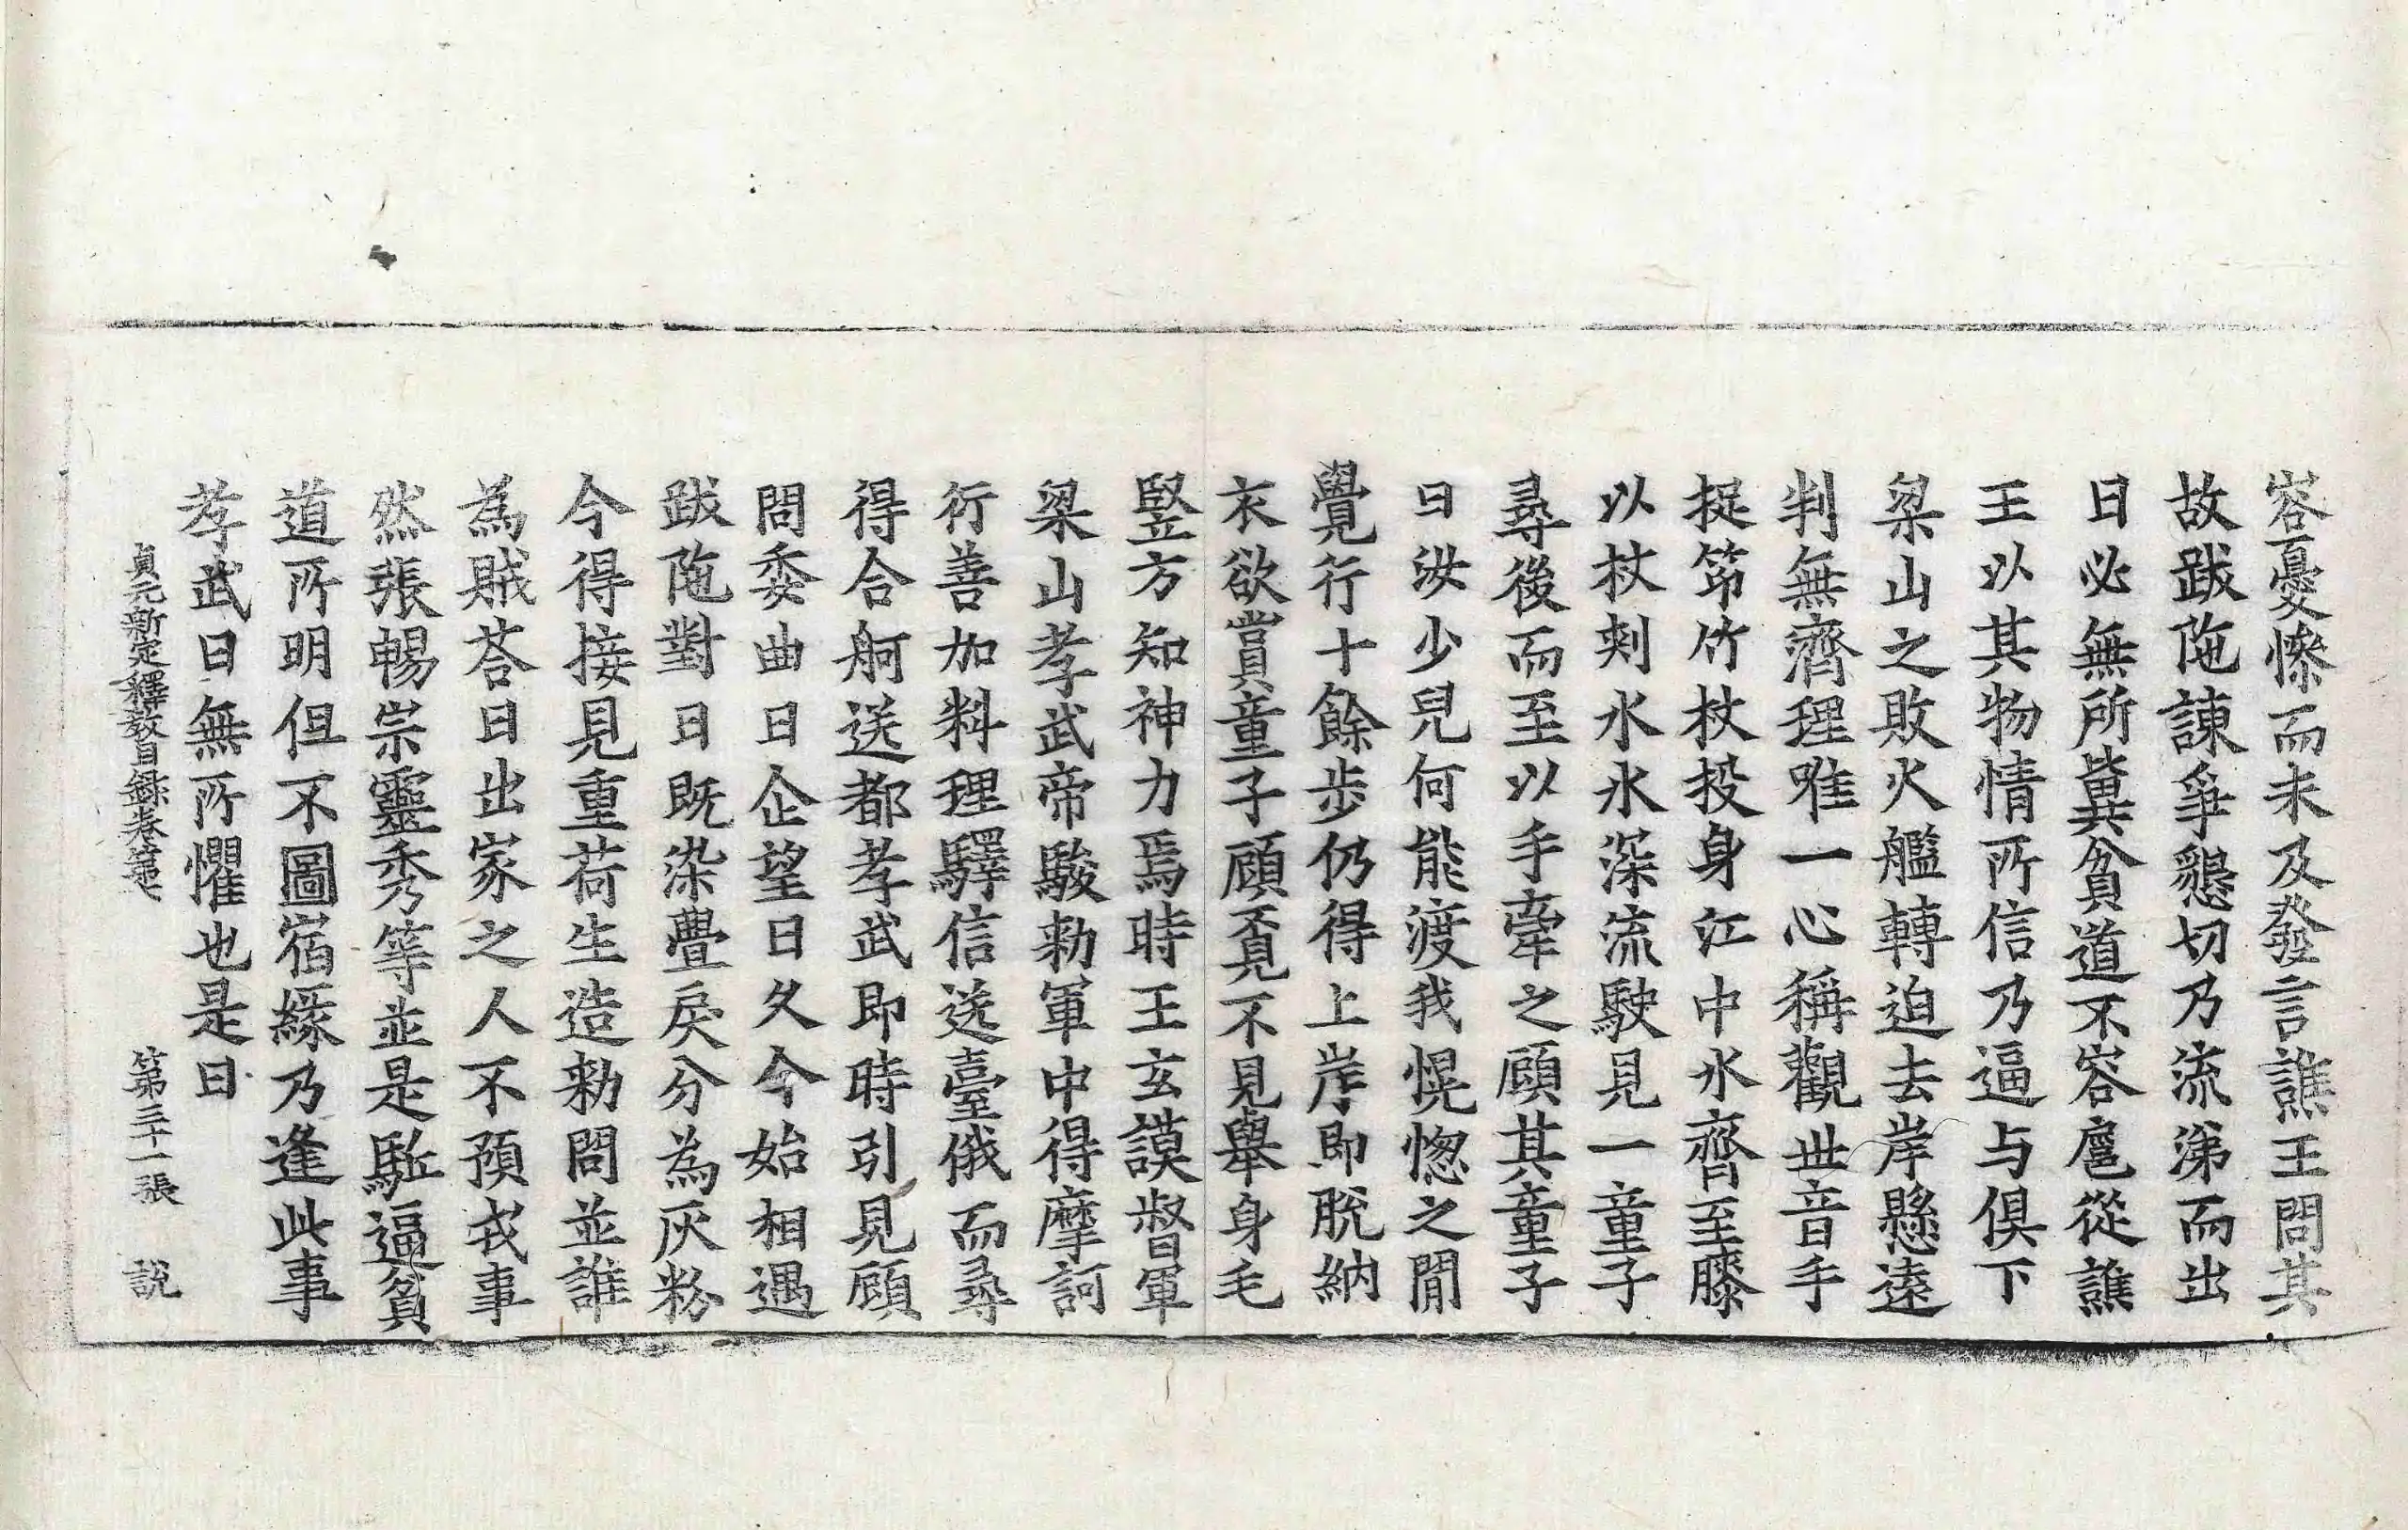 容憂慘而未及發言譙王問其
故跋陁諫爭懇切乃流涕而出
曰必無所兾貧道不容扈從譙
王以其物情所信乃逼与俱下
梁山之敗火艦轉迫去岸懸遠
判無濟理唯一心稱觀世音手
捉笻竹杖投身江中水齊至膝
以杖刾水水深流駛見一童子
尋後而至以手牽之顧其童子
曰汝少兒何能渡我怳惚之間
覺行十餘步仍得上岸即脫納
衣欲賞童子顧覓不見舉身毛
竪方知神力焉時王玄謨督軍
梁山孝武帝駿勑軍中得摩訶
衍善加料理驛信送臺俄而尋
得合舸送都孝武即時引見顧
問委曲曰企望日久今始相遇
跋陁對曰既染舋戾分為灰粉
今得接見重荷生造勑問並誰
為賊荅曰出家之人不預戎事
然張暢宗靈秀等並是駈逼貧
道所明但不圖宿緣乃逢此事
孝武曰無所懼也是日
貞元新定釋教目錄卷第七 第三十一張 說